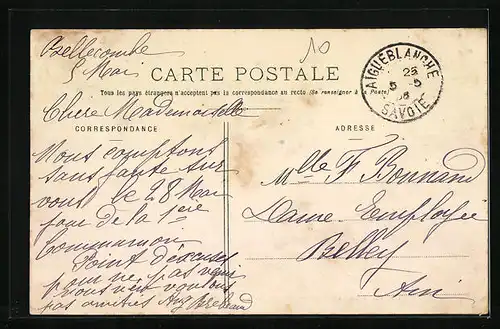 Bellecombe
5 Mai
10
CARTE POSTALE
Tous les pays étrangers n'acceptent pas la correspondance au recto (Se renseigner à la Poste)
AIGUEBLANCHE
25
5 - 5
SAVOIE
Chere Mademoiselle
CORRESPONDANCE
ADRESSE
Nous comptons
sans faute sur
vous le 28 Mai
jour de la 1ere
Communion
Point d'excuses
pour ne pas venir
Mlle F Bonnand
Dame Employée
Belley
Ain